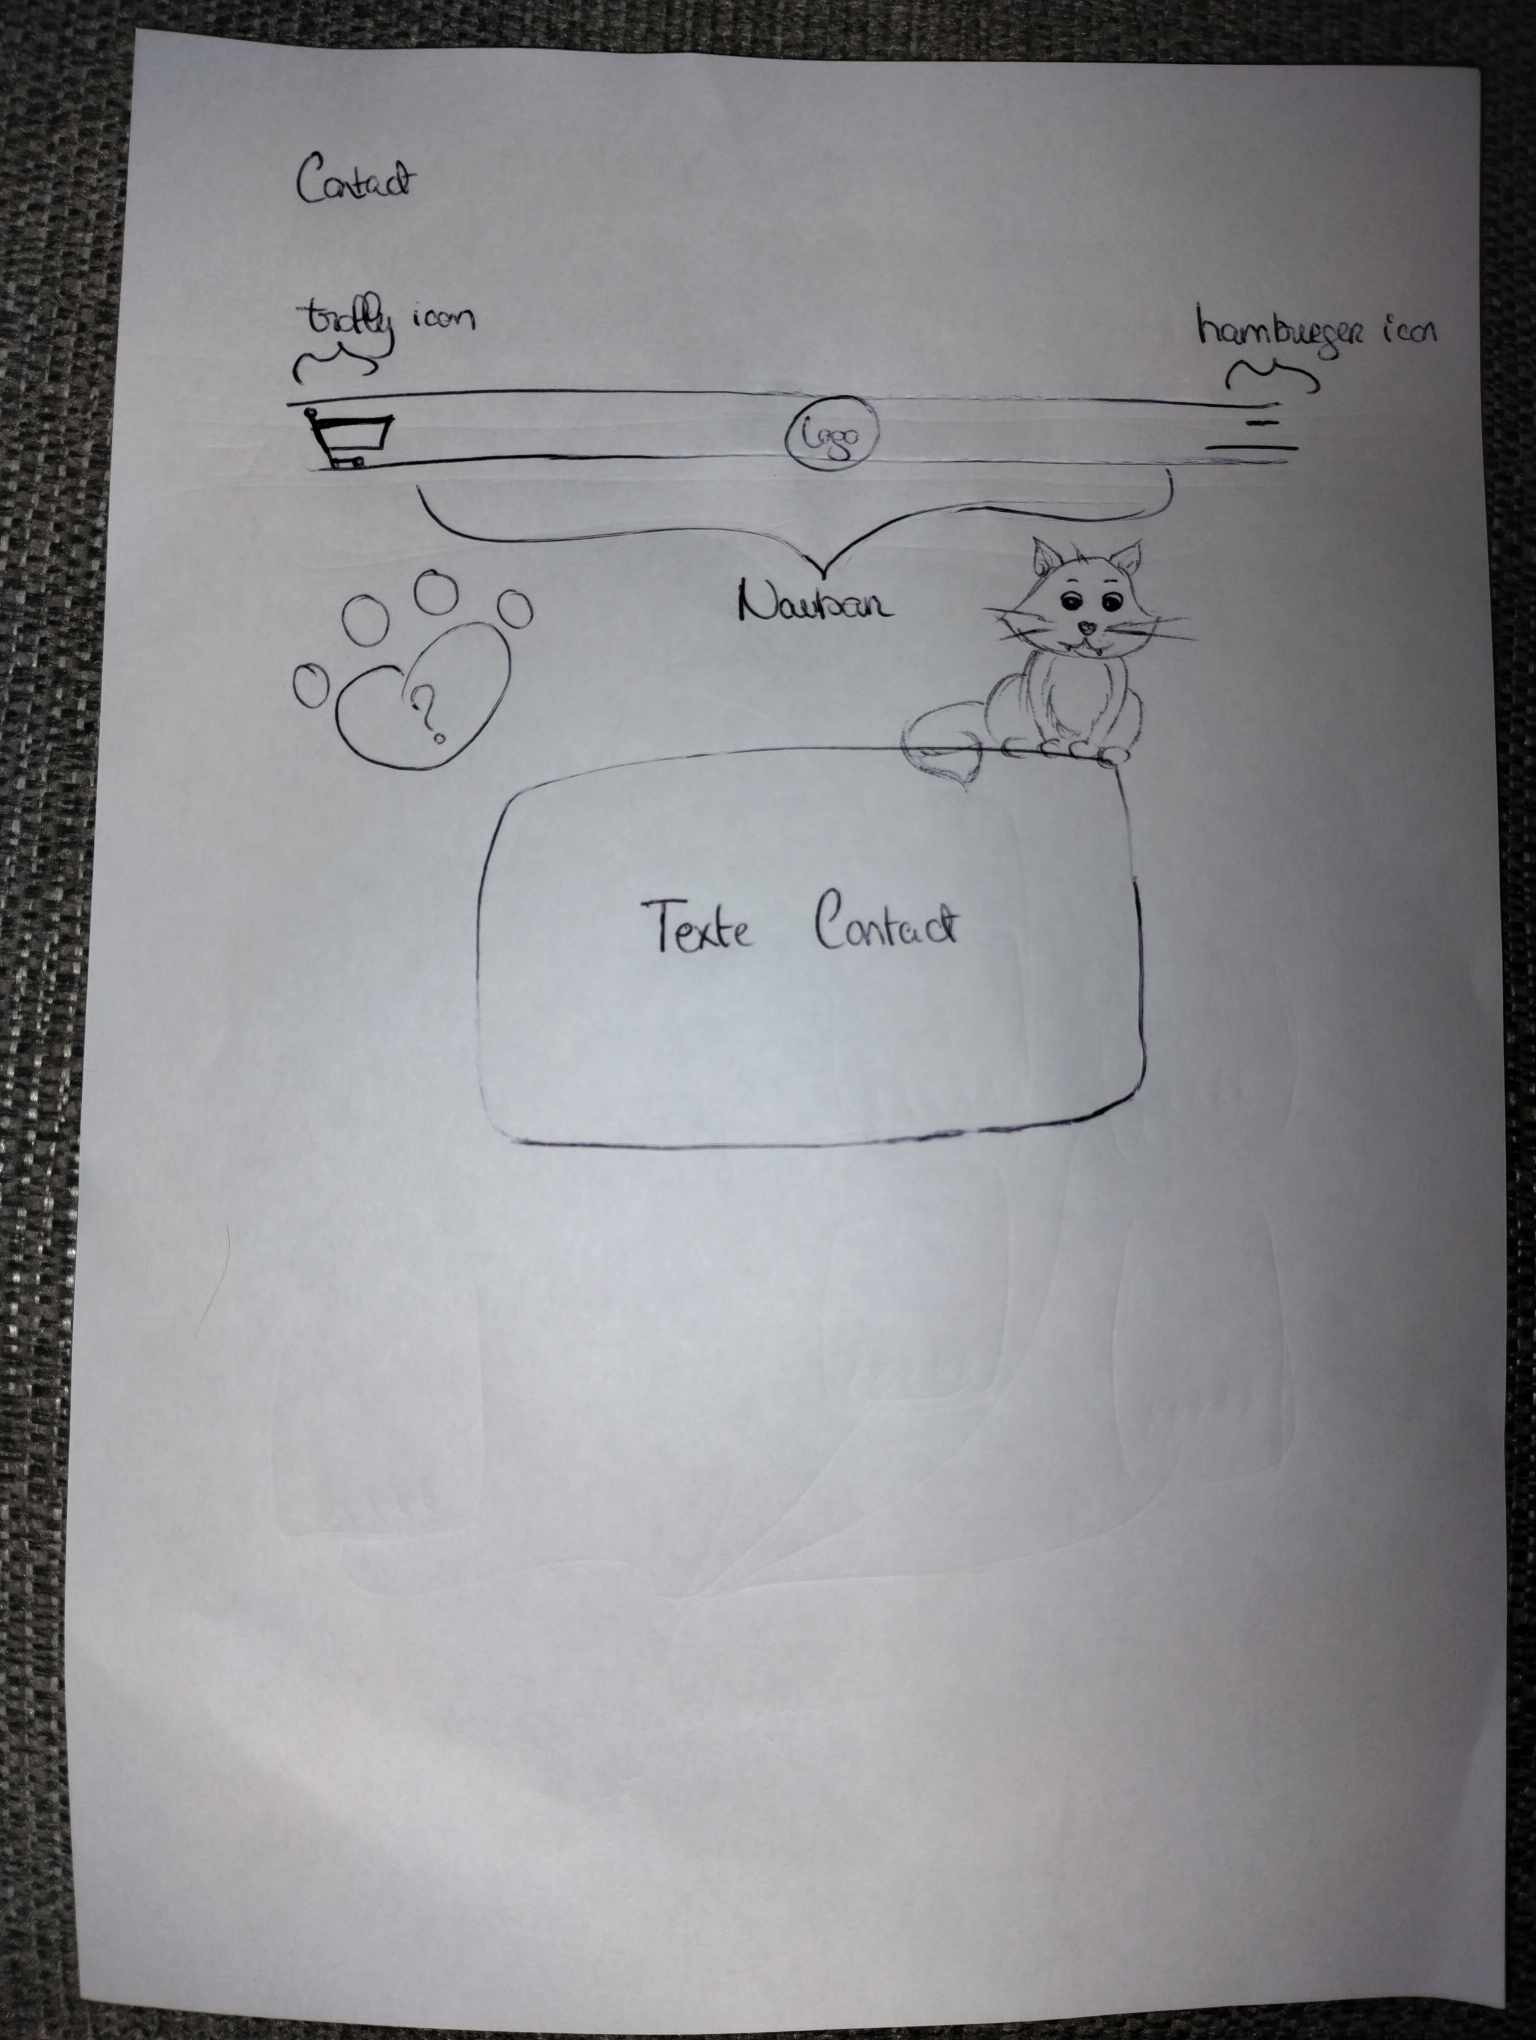 Contact
trolly icon
hamburger icon
Logo
Navbar
?
Texte Contact